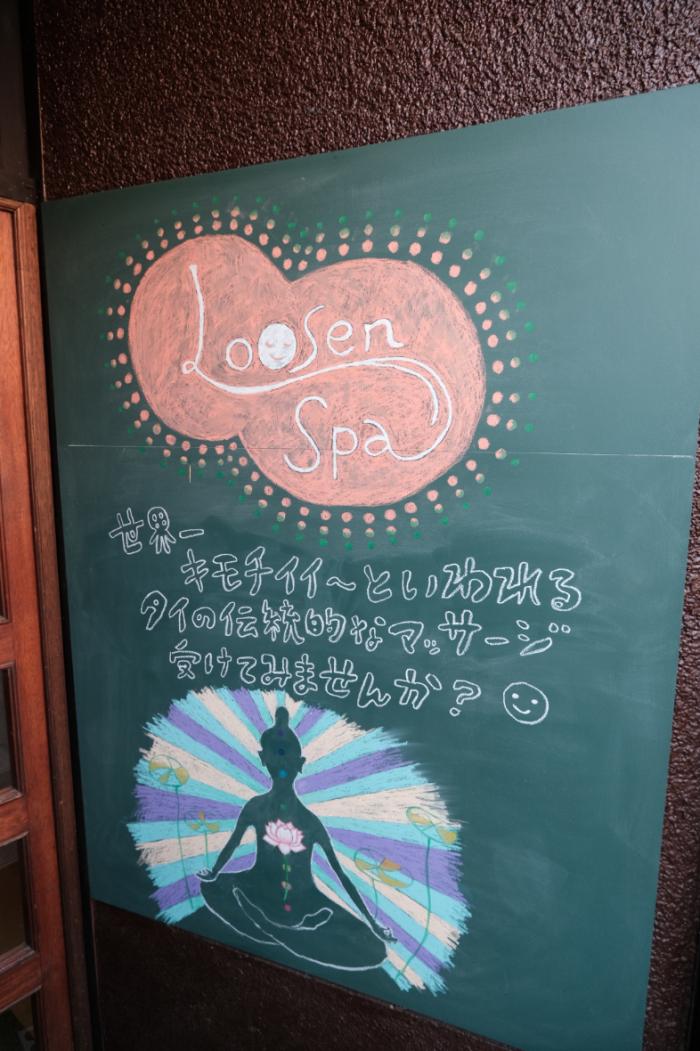 Loosen
Spa
世界一
キモチイイ～といわれる
タイの伝統的なマッサージ
受けてみませんか？